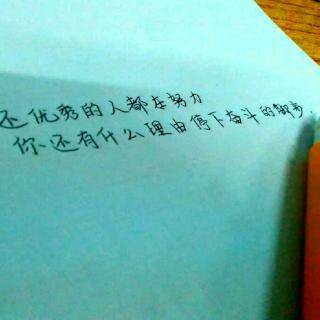 还优秀的人都在努力
你还有什么理由停下奋斗的脚步